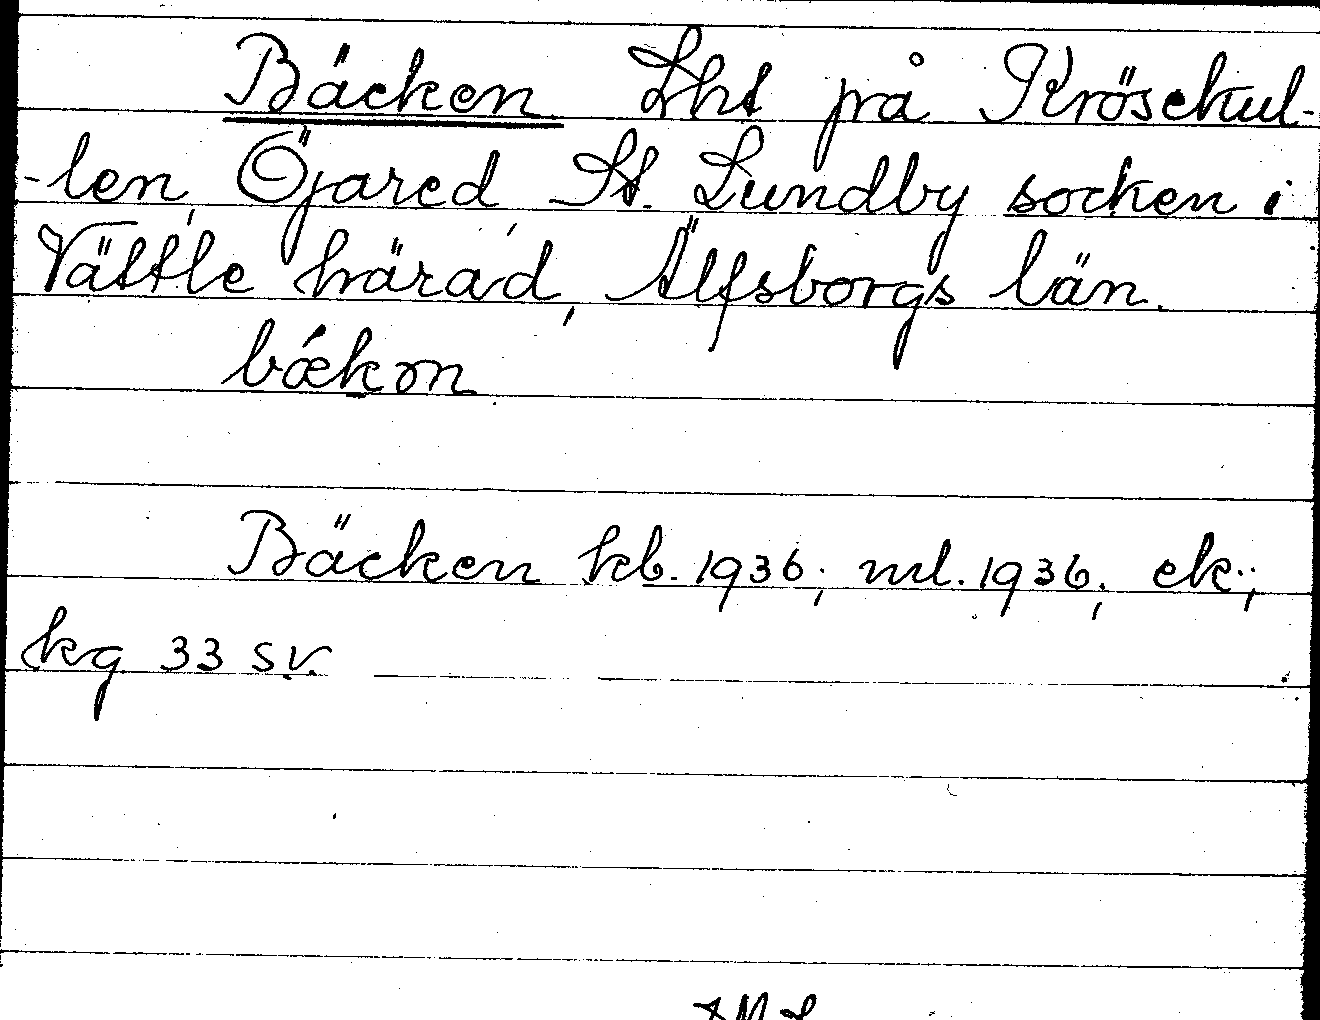 Bäcken Lht på Krösekul-
-len, Öjared St. Lundby socken i
Vättle härad, Älfsborgs län.
bǽkən
Bäcken kb. 1936; ml. 1936; ek.;
kg 33 sv.